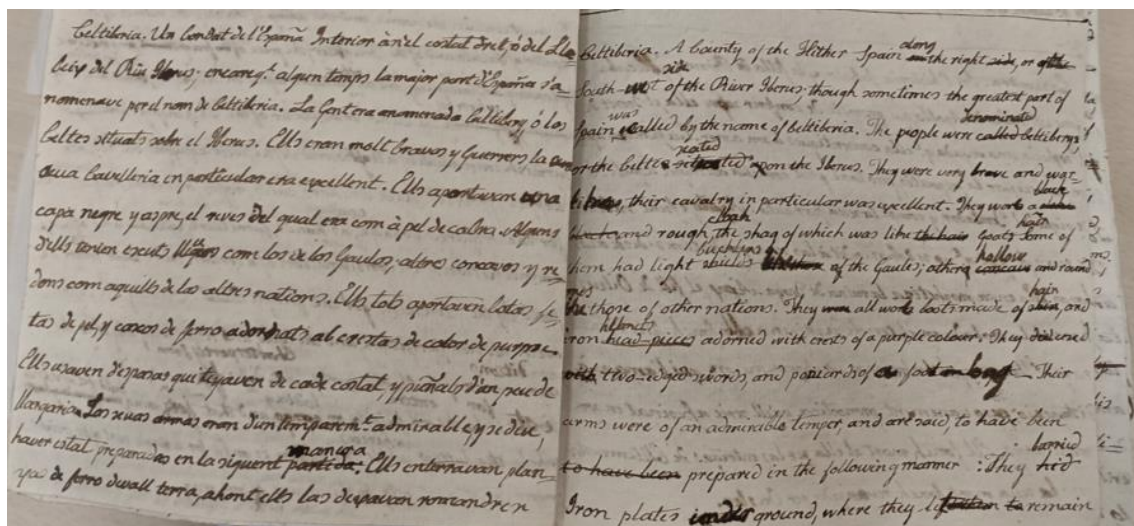 Celtiberia. Un Condat de l'España Interior à n'el costat dret, ó del Lla
beix del Riu Iberus; encareq.ª algun temps la major part d'España s'a
nomenave per el nom de Celtiberia. La Gent era anomenada Celtibers, ó los
Celtes situats sobre el Iberus. Ells eran molt bravos y Guerrers la
sua Cavelleria en particular era excellent. Ells aportavan una
capa negre y aspre, el reves del qual era com à pel de cabra. Alguns
d'ells tenien escuts llaugers com los de los Gaulos, altres concavos y re
dons com aquells de las altres nations. Ells tots aportavan botas fe-
tas de pel, y cascos de ferro adornats ab crestas de color de purpre.
Ells usaven d'espasas qui teyaven de cade costat, y puñals d'un peu de
llargaria. Las suas armas eran d'un temparem.t admirable, y se diu,
manera
haver estat preparadas en la siguent partida: Ells enterravan plan-
yas de ferro devall terra, ahont ells las dexavan romandrer
along
Celtiberia. A County of the Hither Spain on the right side, or of the
side
South-west of the River Iberus though sometimes the greatest part of
was denominated
Spain called by the name of Celtiberia. The people were called Celtibers,
seated
or the Celtes situated upon the Iberus. They were very brave and war-
black
like, their cavalry in particular was excellent. They wore a
cloak hair
black and rough, the shag of which was like the hair Goats. Some of
bucklers hollow
them had light shields like those of the Gauls; others concave and round
hair
like those of other nations. They wore all wore boots made of skin, and
helmets
iron head-pieces adorned with crests of a purple colour. They
with two-edged swords, and poniards of a foot long. Their
arms were of an admirable temper, and are said, to have been
barried
to have been prepared in the following manner: They hid
Iron plates under ground, where they let them to remain